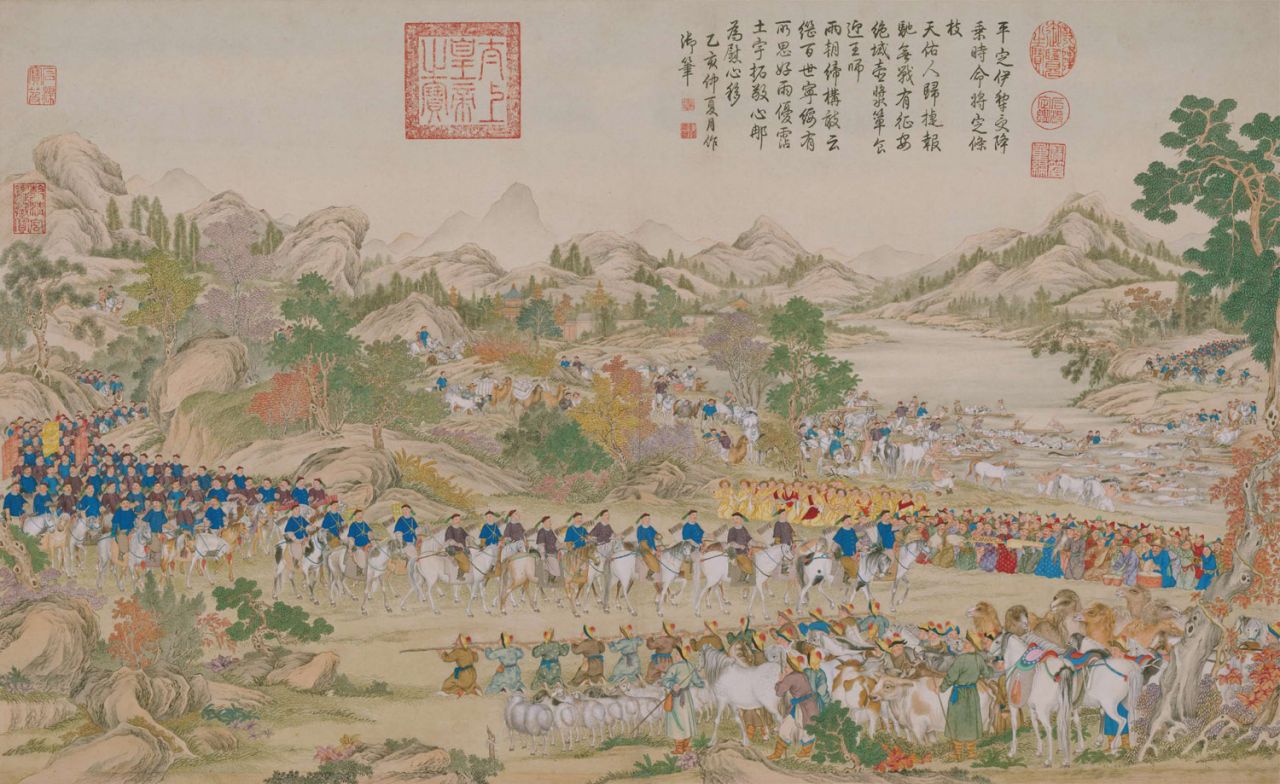 平定伊犁受降
乘時命將定條
枝
天佑人歸捷報
馳無戰有征安
絶域壺漿簞食
迎王師
兩朝締構敢云
繼百世寧綏有
所思好雨優霑
土宇拓敬心那
為慰心移
乙亥仲夏月作
御筆
太上皇帝之寶
石渠定鑑
寶笈重編